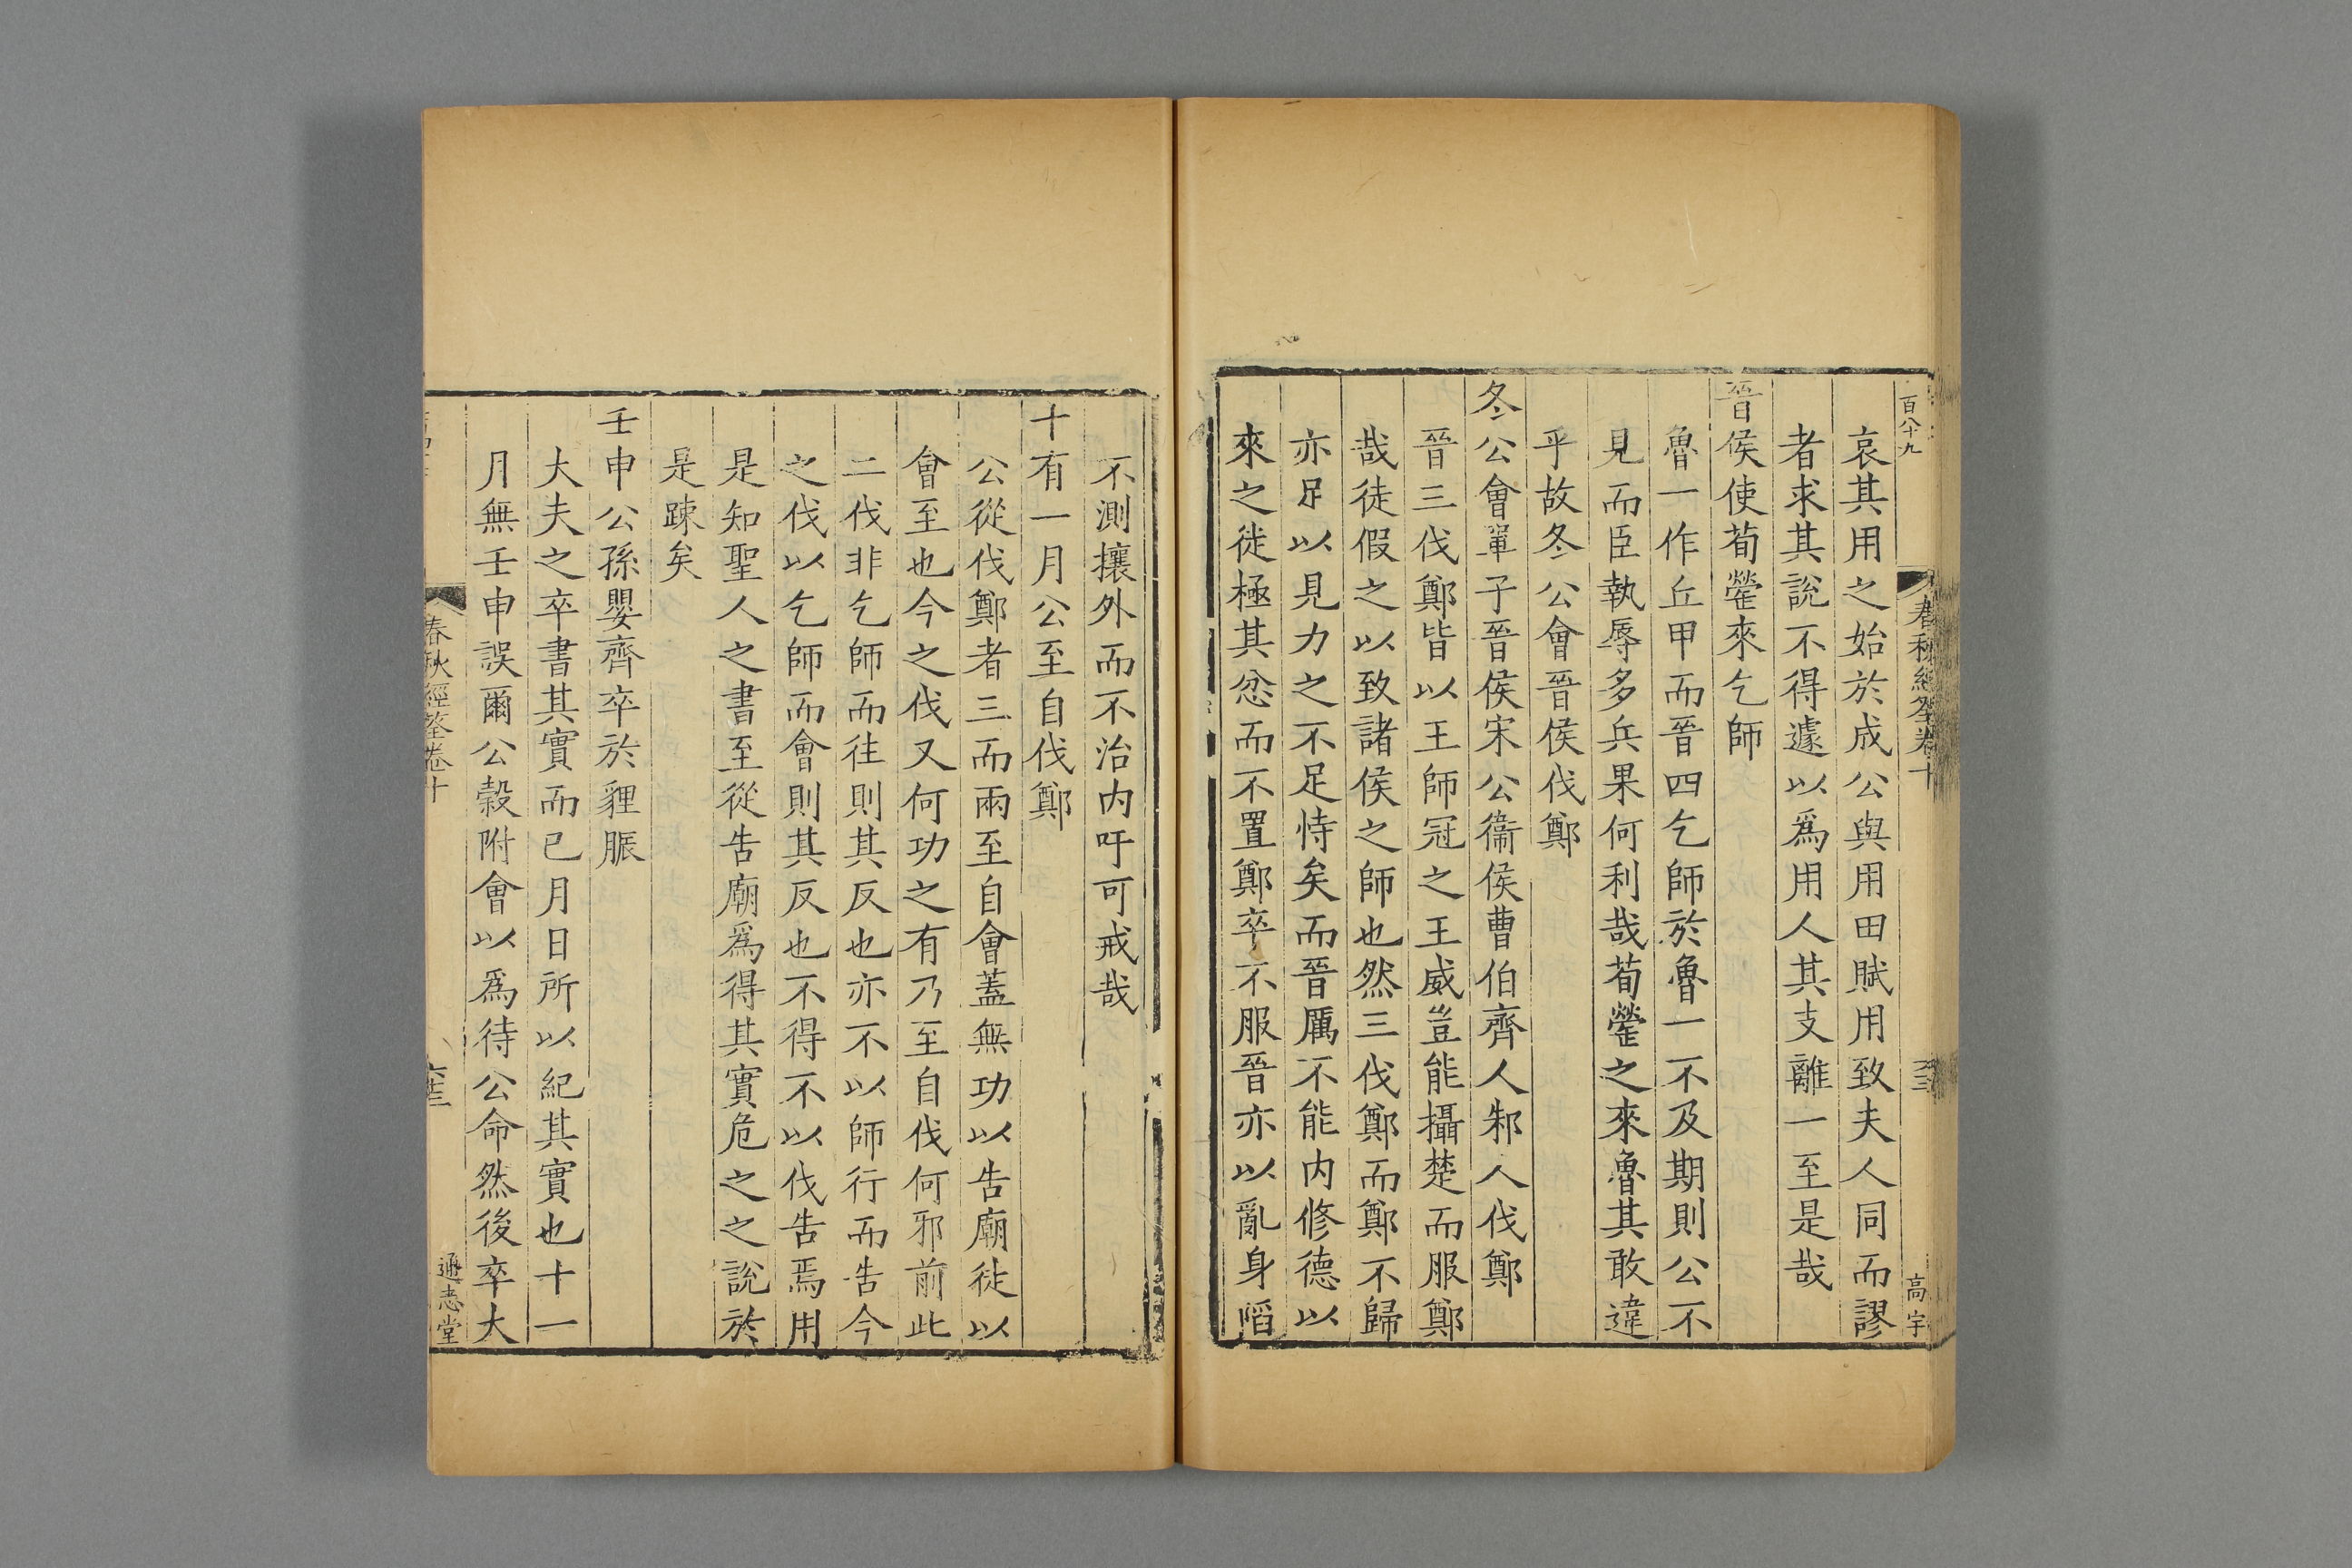 百八十九
春秋經筌卷十
高宇
哀其用之始於成公與用田賦用致夫人同而謬
者求其說不得遽以爲用人其支離一至是哉
晉侯使荀罃來乞師
魯一作丘甲而晉四乞師於魯一不及期則公不
見而臣執辱多兵果何利哉荀罃之來魯其敢違
乎故冬公會晉侯伐鄭
冬公會單子晉侯宋公衞侯曹伯齊人邾人伐鄭
晉三伐鄭皆以王師冠之王威豈能攝楚而服鄭
哉徒假之以致諸侯之師也然三伐鄭而鄭不歸
亦足以見力之不足恃矣而晉厲不能内修德以
來之徒極其忿而不置鄭卒不服晉亦以亂身蹈
不測攘外而不治内吁可戒哉
十有一月公至自伐鄭
公從伐鄭者三而兩至自會蓋無功以告廟徒以
會至也今之伐又何功之有乃至自伐何邪前此
二伐非乞師而往則其反也亦不以師行而告今
之伐以乞師而會則其反也不得不以伐告焉用
是知聖人之書至從告廟爲得其實危之之說於
是踈矣
壬申公孫嬰齊卒於貍脤
大夫之卒書其實而已月日所以紀其實也十一
月無壬申誤爾公榖附會以爲待公命然後卒大
春秋經筌卷十
通志堂